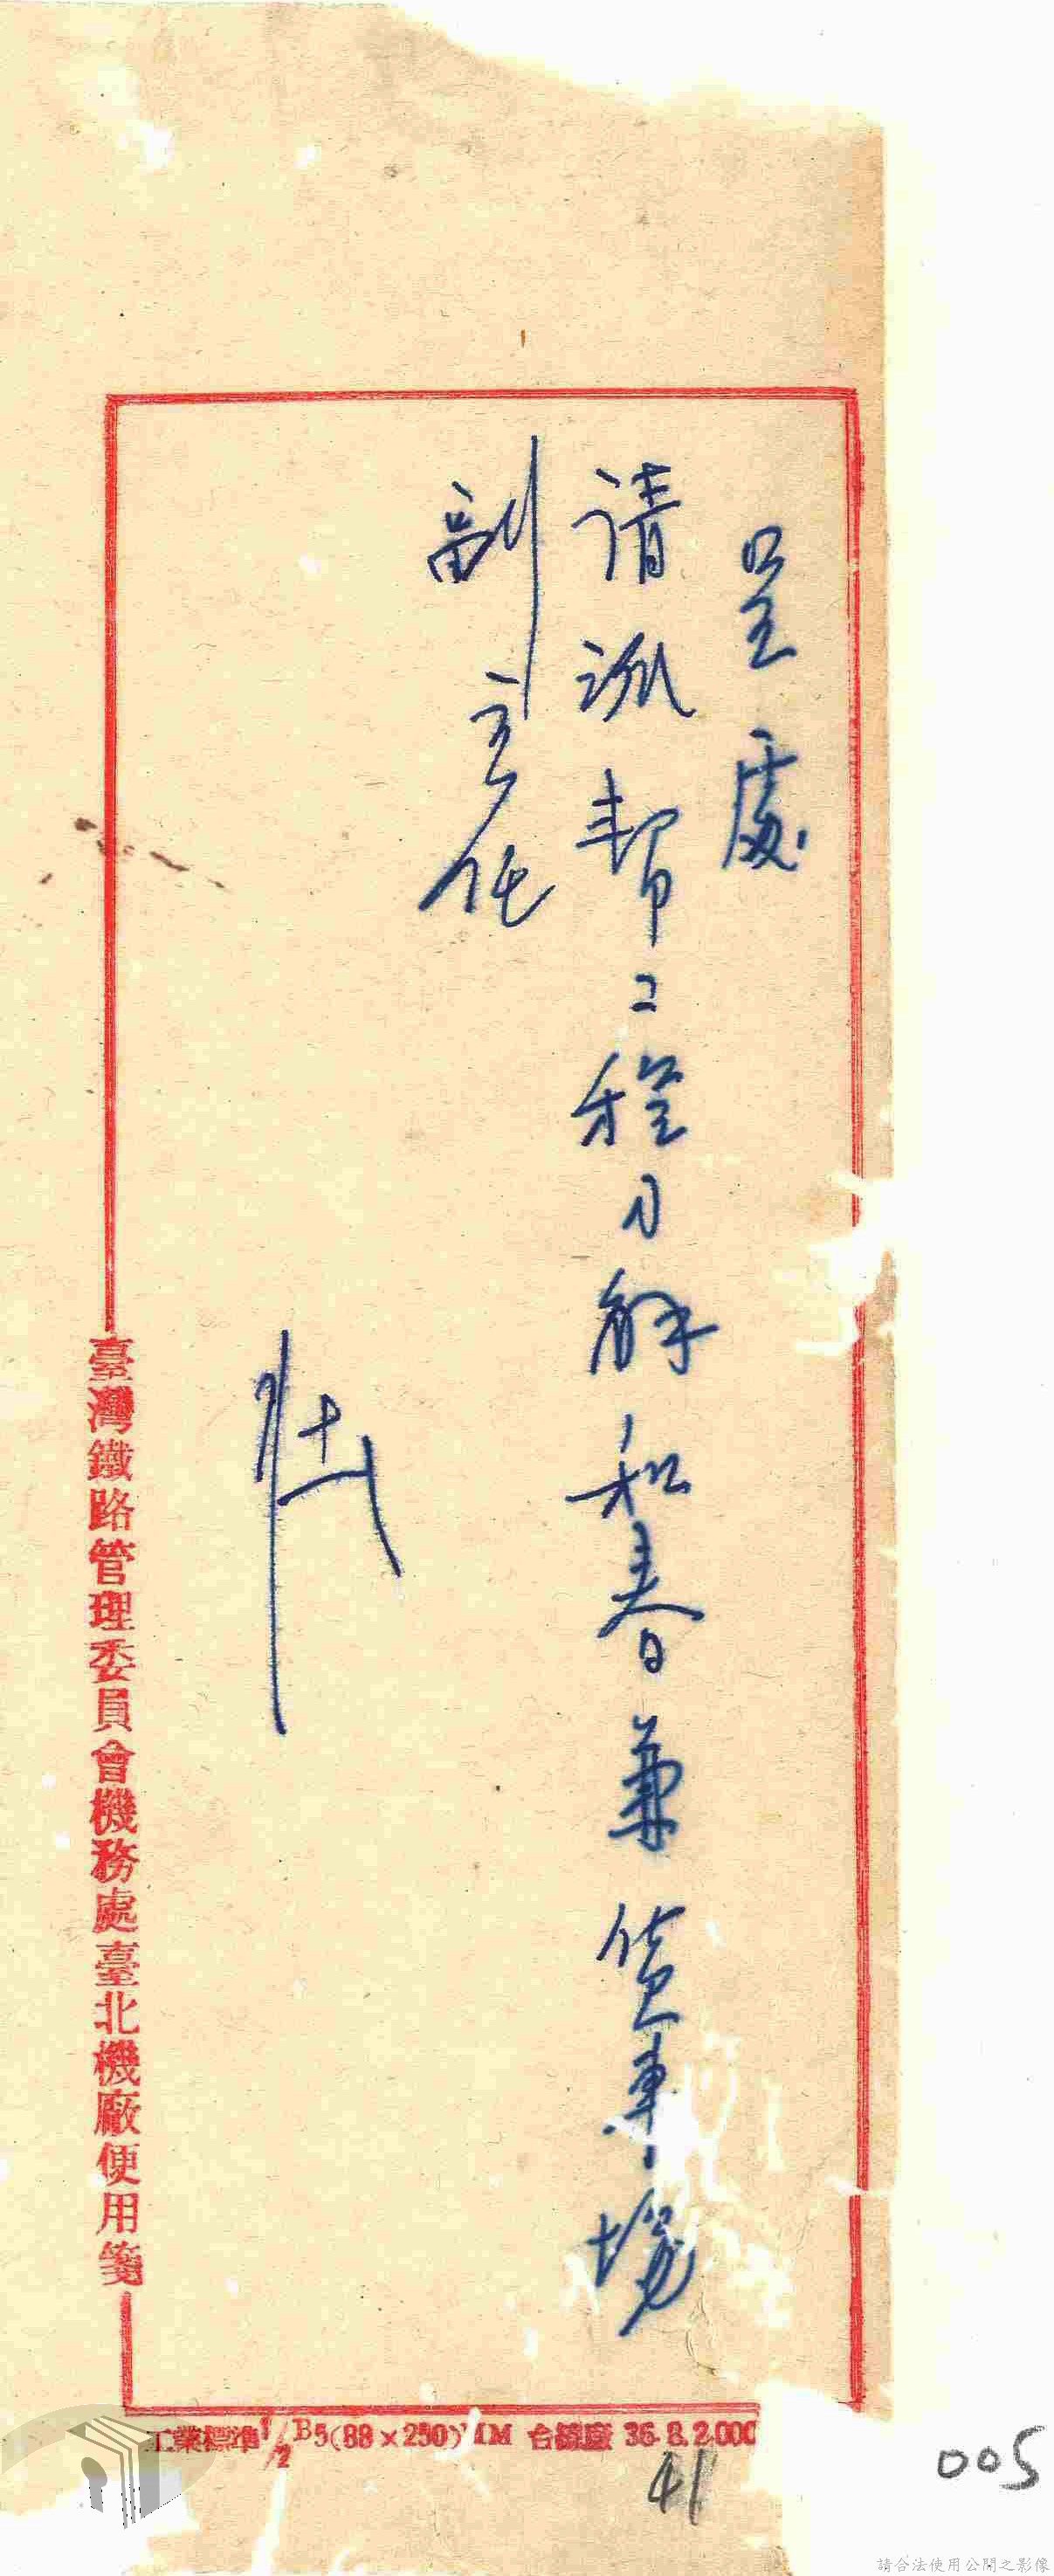 呈處
請派幫工程司解和春兼貨車場
副主任
臺灣鐵路管理委員會機務處臺北機廠便用箋
工業標準1/2B5(88×250) 1M 台鐵廠 36.8.2.000
41
005
請合法使用公開之影像